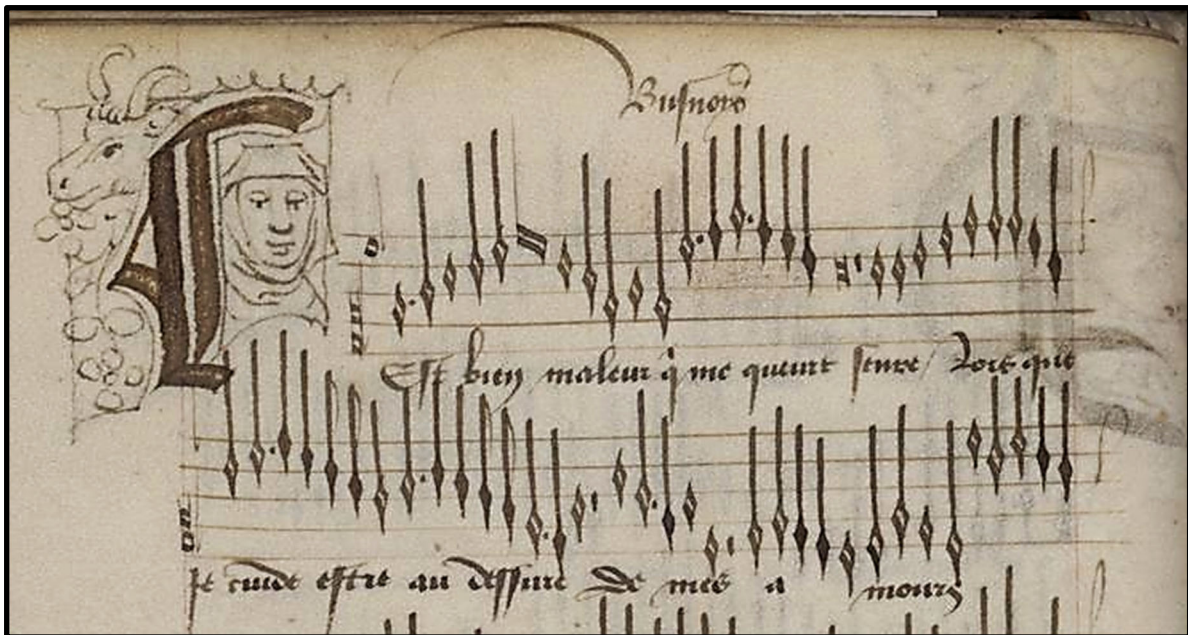 Busnoys
CEst bien maleur q̇ me queurt seure / Lors que
Je cuide estre au dessure de mes a mours